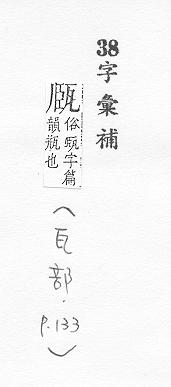 38字彙補
俗字篇
韻瓶也
(瓦部.P.133)